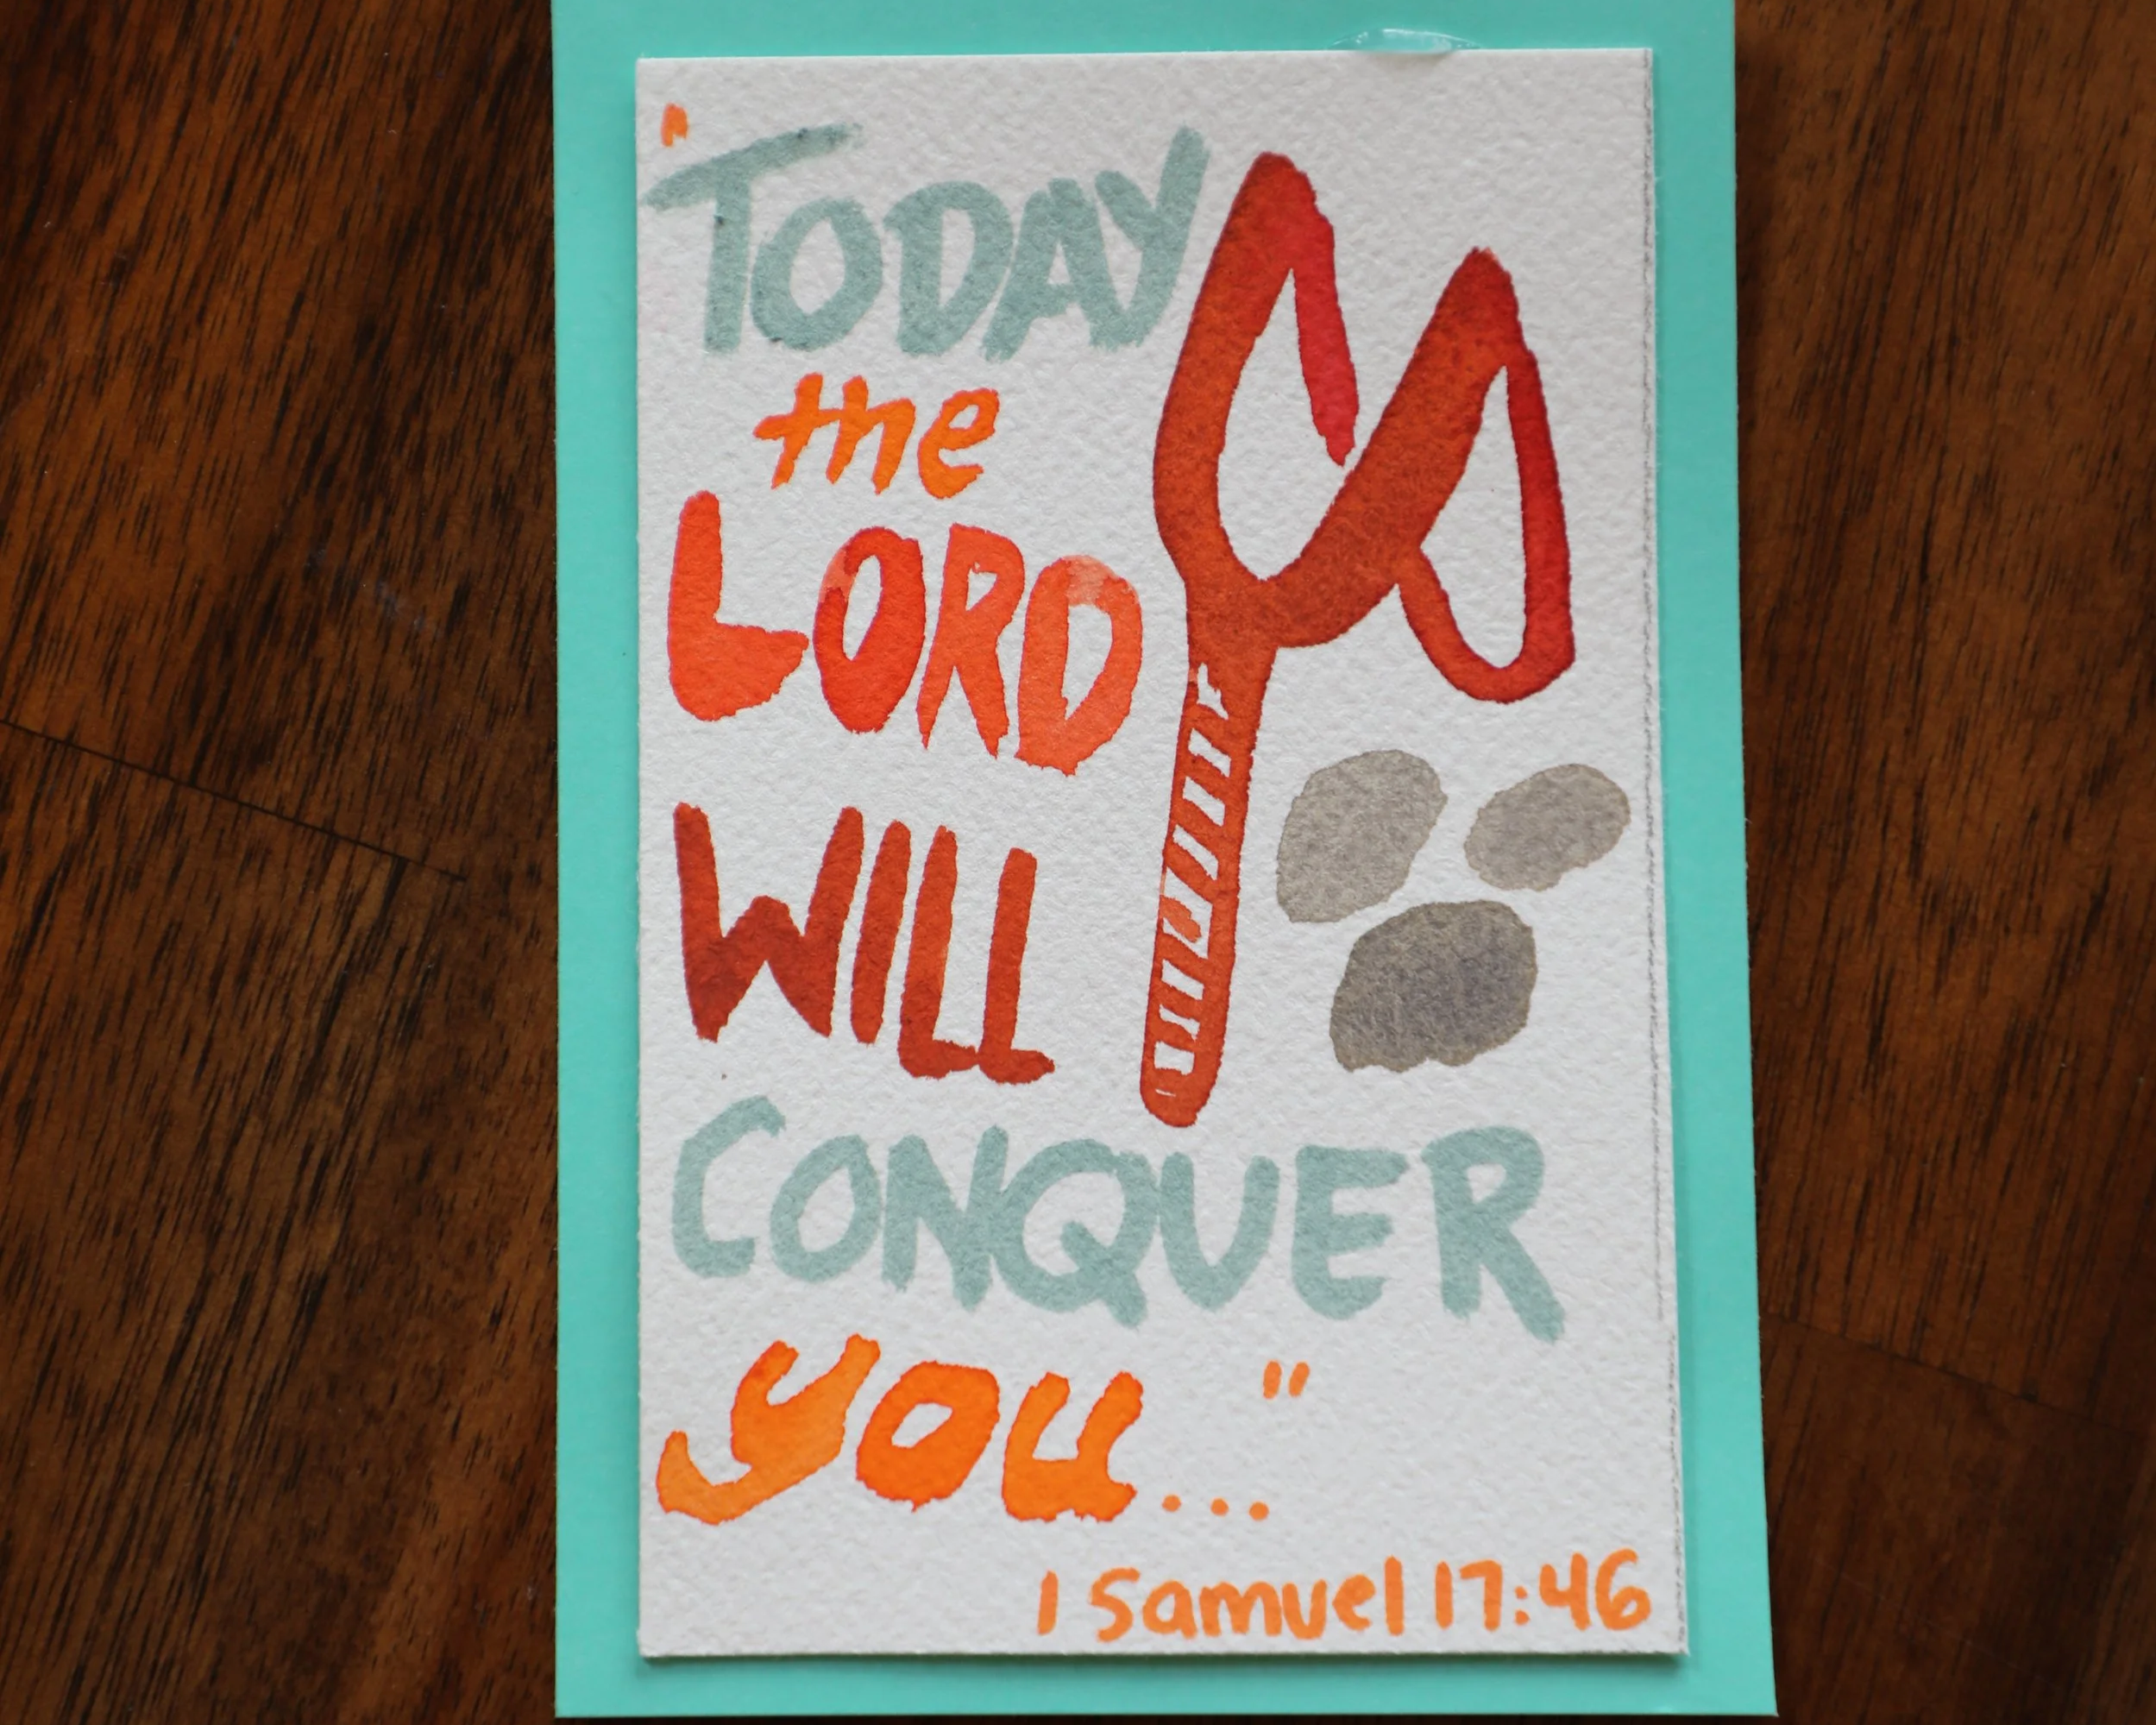 "TODAY
the
LORD
WILL
CONQUER
you..."
1 Samuel 17:46